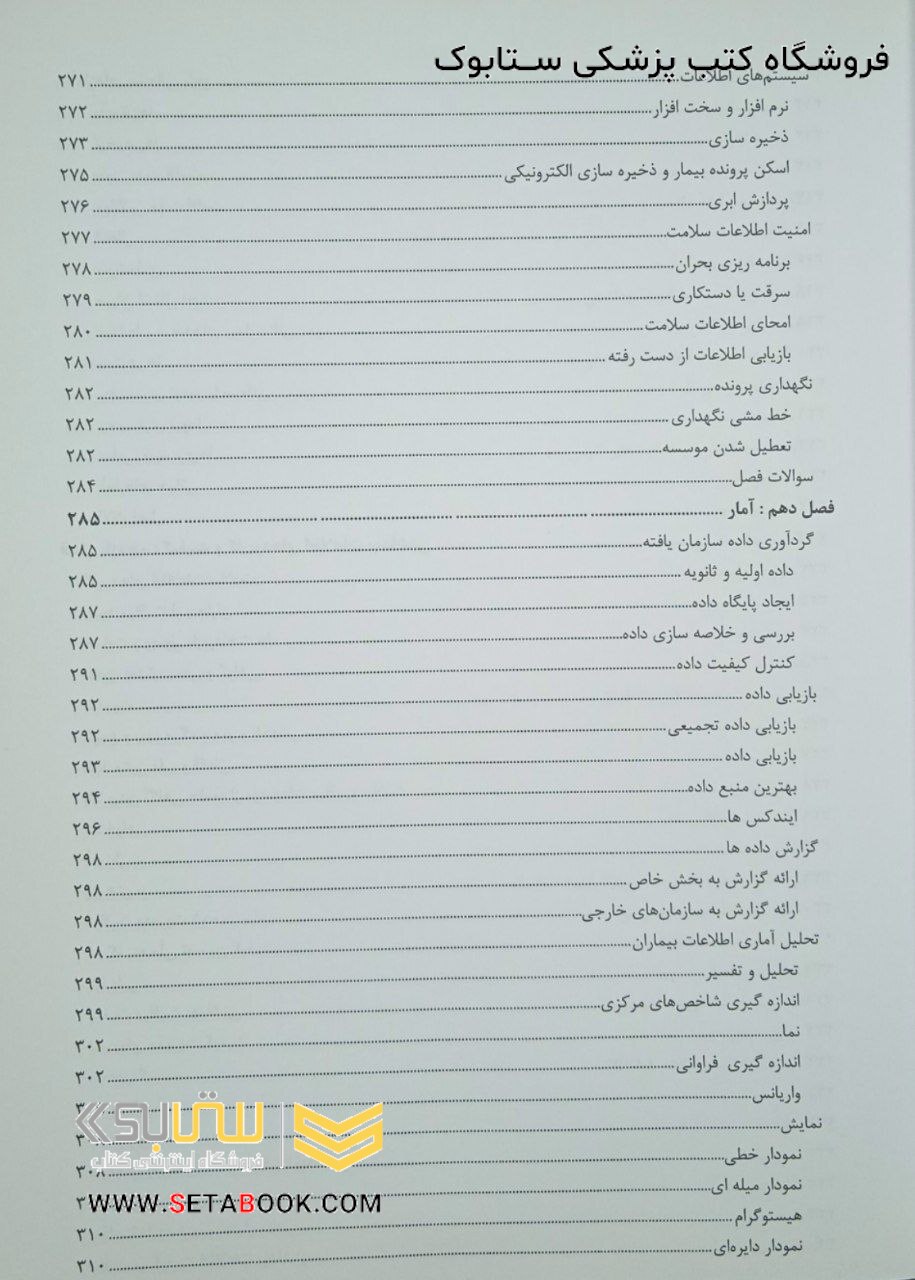 فروشگاه کتب پزشکی ستابوک
سیستم‌های اطلاعات ۲۷۱
نرم افزار و سخت افزار ۲۷۲
ذخیره سازی ۲۷۳
اسکن پرونده بیمار و ذخیره سازی الکترونیکی ۲۷۵
پردازش ابری ۲۷۶
امنیت اطلاعات سلامت ۲۷۷
برنامه ریزی بحران ۲۷۸
سرقت یا دستکاری ۲۷۹
امحای اطلاعات سلامت ۲۸۰
بازیابی اطلاعات از دست رفته ۲۸۱
نگهداری پرونده ۲۸۲
خط مشی نگهداری ۲۸۲
تعطیل شدن موسسه ۲۸۲
سوالات فصل ۲۸۴
فصل دهم : آمار ۲۸۵
گردآوری داده سازمان یافته ۲۸۵
داده اولیه و ثانویه ۲۸۵
ایجاد پایگاه داده ۲۸۷
بررسی و خلاصه سازی داده ۲۸۷
کنترل کیفیت داده ۲۹۱
بازیابی داده ۲۹۲
بازیابی داده تجمیعی ۲۹۲
بازیابی داده ۲۹۳
بهترین منبع داده ۲۹۴
ایندکس ها ۲۹۶
گزارش داده ها ۲۹۸
ارائه گزارش به بخش خاص ۲۹۸
ارائه گزارش به سازمان‌های خارجی ۲۹۸
تحلیل آماری اطلاعات بیماران ۲۹۸
تحلیل و تفسیر ۲۹۹
اندازه گیری شاخص‌های مرکزی ۲۹۹
نما ۳۰۲
اندازه گیری فراوانی ۳۰۲
واریانس
نمایش
نمودار خطی ۳۰۸
نمودار میله ای
هیستوگرام ۳۱۰
نمودار دایره‌ای ۳۱۰
ستابوک
فروشگاه اینترنتی کتاب
WWW.SETABOOK.COM